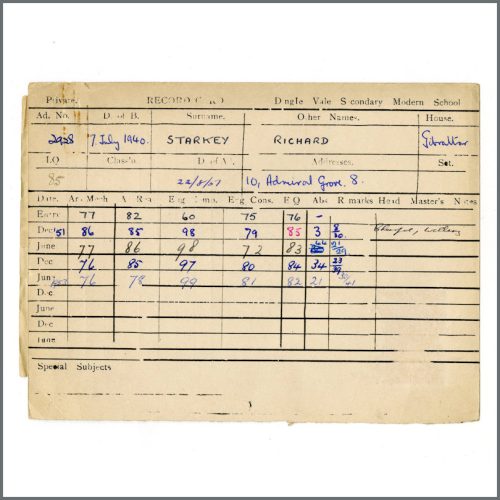 Private. RECORD CARD Dingle Vale Secondary Modern School
Ad. No. D. of B. Surname. Other Names. House.
2928 7 July 1940. STARKEY RICHARD Gibraltar
I.Q Class'n. D. of A. Addresses. Set.
85 10, Admiral Grove. 8.
Date. Ar. Mech A. Rea. Eng. Comp. Eng. Cons. E Q Abs Remarks Head Master's Notes
77 82 60 75 76 -
Dec 51 86 85 98 79 85 3
June 77 86 98 72 83
Dec 76 85 97 80 84 34
June 76 78 99 81 82 21
Dec
June
Dec
June
Special Subjects